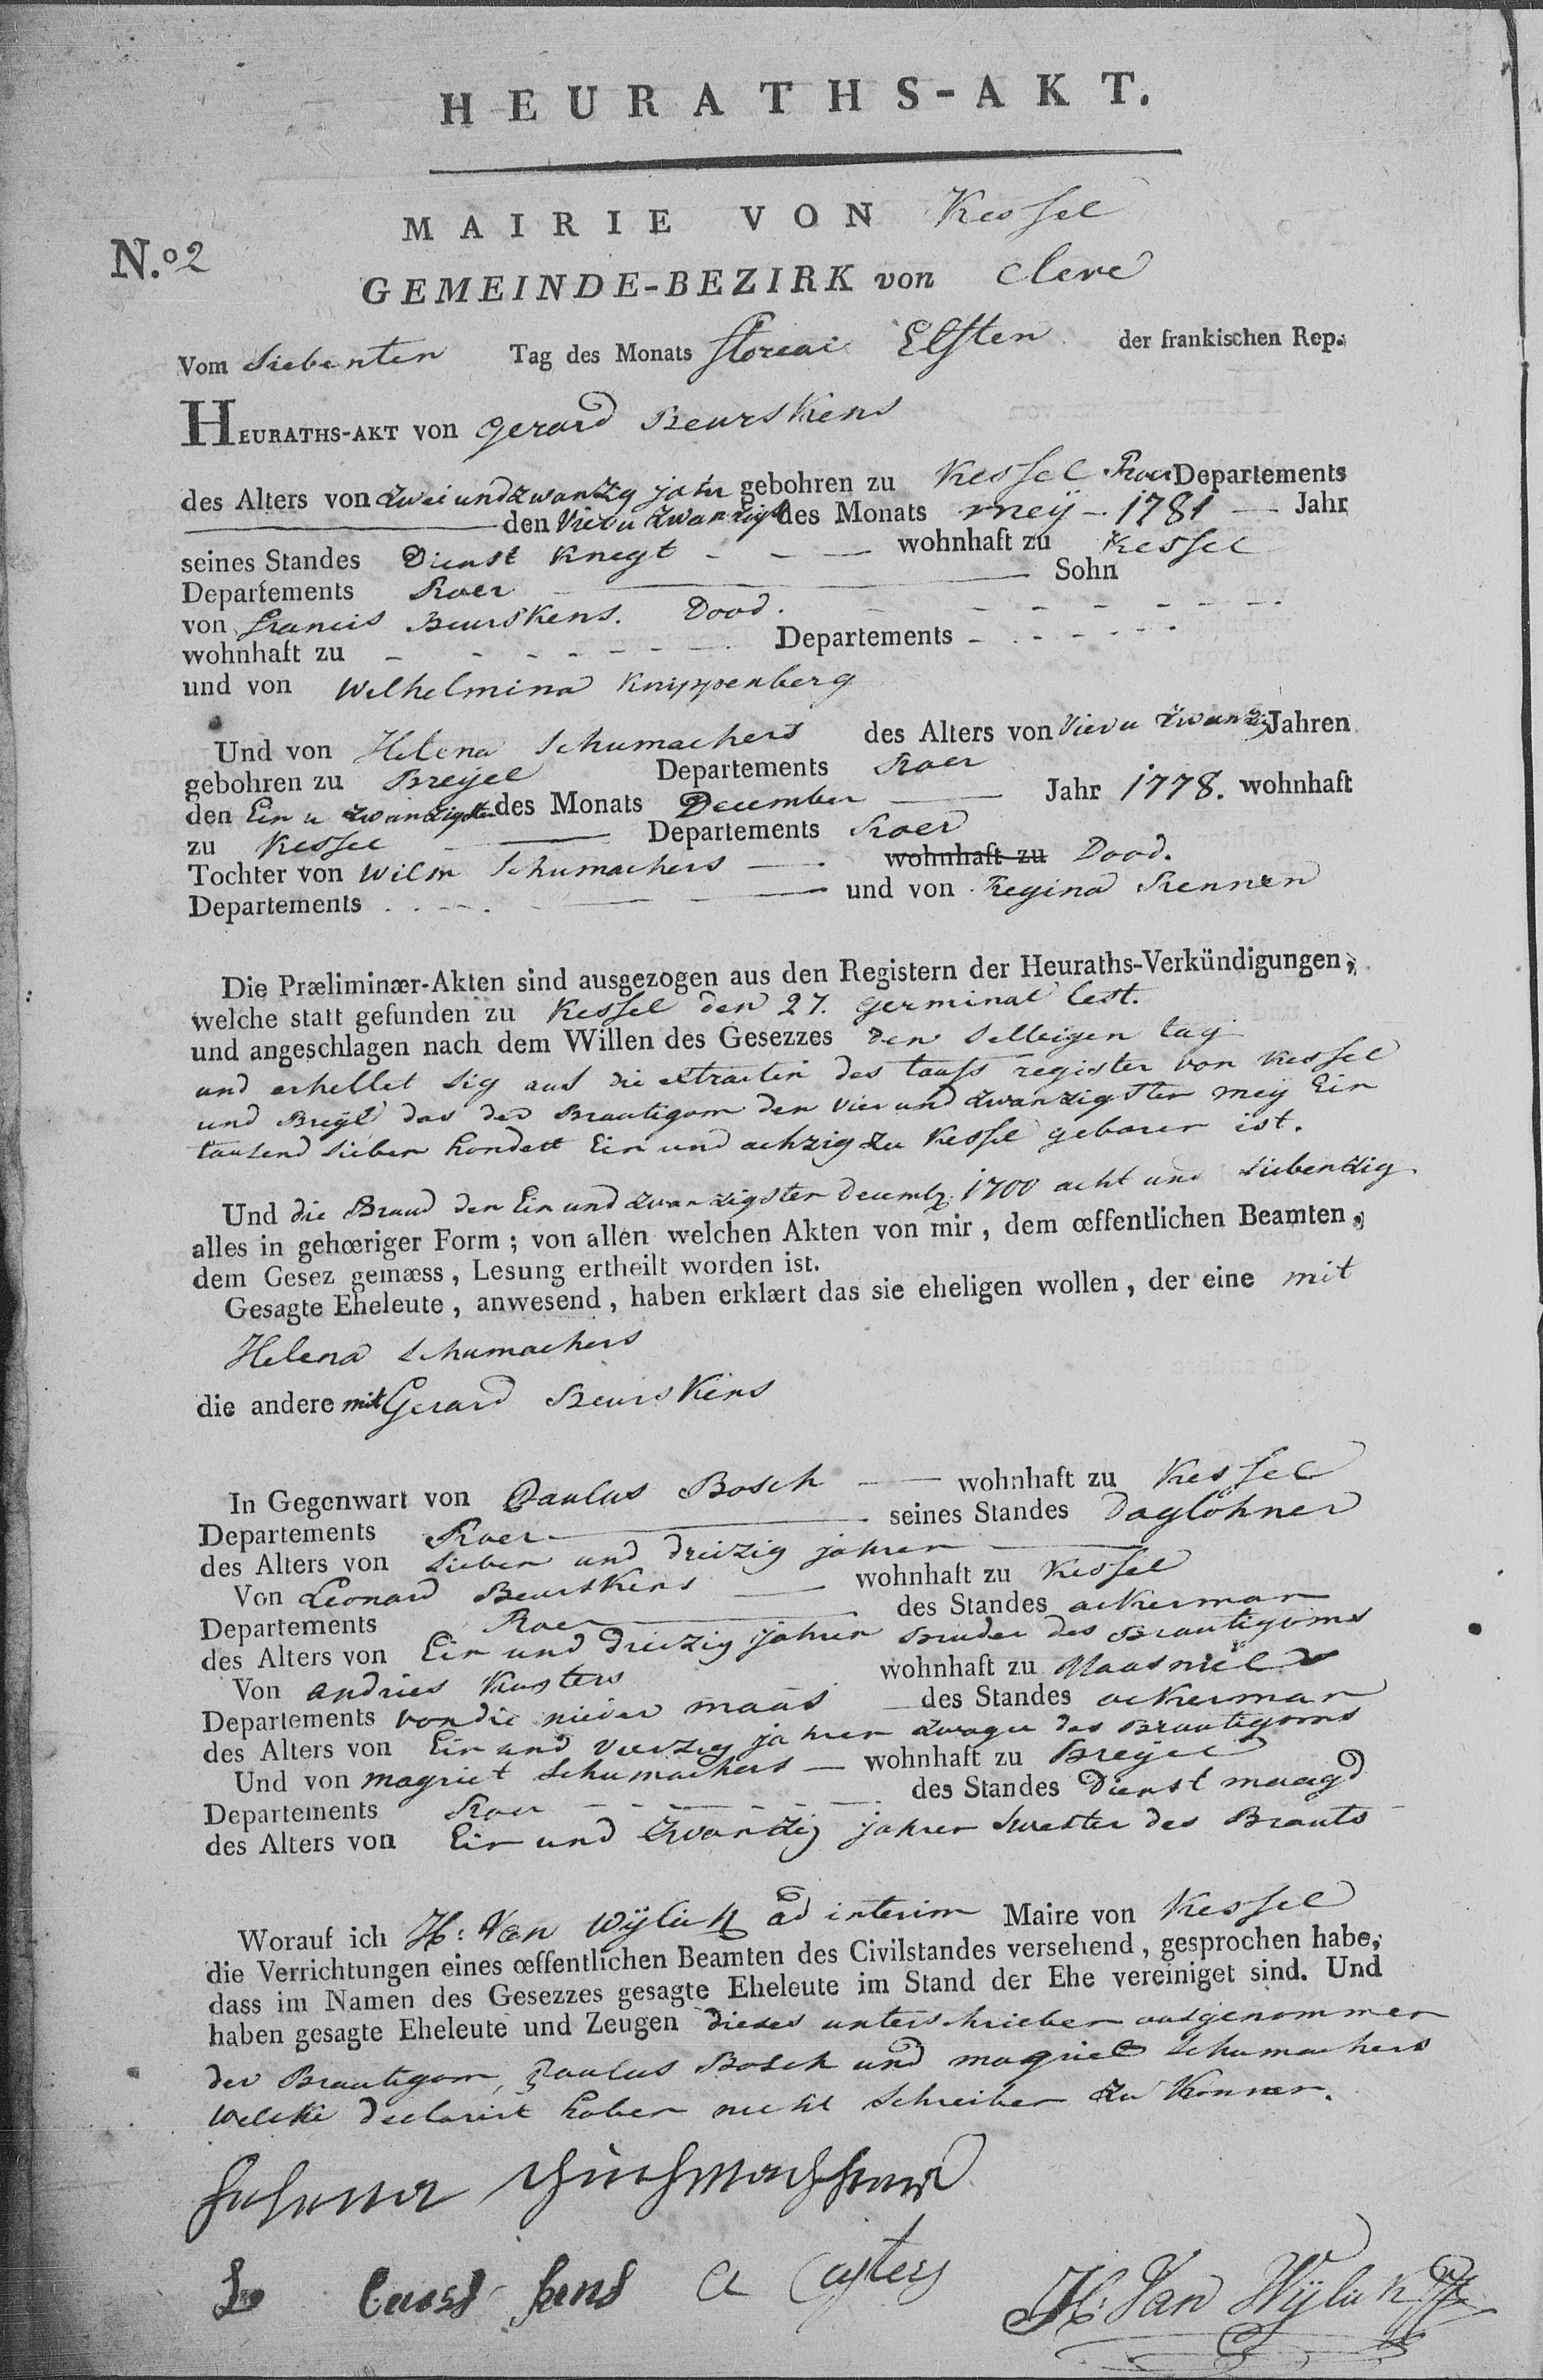 HEURATHS-AKT.
MAIRIE VON Kessel
N.º 2
GEMEINDE-BEZIRK von Cleve
Vom Siebenten Tag des Monats floreai Elften der frankischen Rep.
HEURATHS-AKT von Gerard Beurskens
des Alters von zwei und zwanzig jahr gebohren zu Kessel Roer Departements
den Vier u zwanzigst des Monats meÿ - 1781 - Jahr
seines Standes Dienst Knegt - - - wohnhaft zu Kessel
Departements Roer Sohn
von Francis Beurskens. Dood.
wohnhaft zu - - - - - - - Departements - - - - - -
und von Wilhelmina Knippenberg
Und von Helena Schumachers des Alters von Vier u zwanzig Jahren
gebohren zu Breyel Departements Roer
den Ein u zwanzigsten des Monats December Jahr 1778. wohnhaft
zu Kessel Departements Roer
Tochter von Wilm Schumachers wohnhaft zu Dood.
Departements und von Regina Rennen
Die Præliminær-Akten sind ausgezogen aus den Registern der Heuraths-Verkündigungen,
welche statt gefunden zu Kessel den 27. germinal lest.
und angeschlagen nach dem Willen des Gesezzes den selbigen tag
und erhellet sig aus die extracten des taufs register von Kessel
und Breÿl das der Brautigom den vier und zwanzigsten meÿ Ein
tausend sieben hondert Ein und achzig zu Kessel geboren ist.
Und die Braud den Ein und zwanzigsten decemb. 1700 acht und siebenzig
alles in gehœriger Form ; von allen welchen Akten von mir , dem œffentlichen Beamten,
dem Gesez gemæss , Lesung ertheilt worden ist.
Gesagte Eheleute , anwesend , haben erklært das sie eheligen wollen , der eine mit
Helena Schumachers
die andere mit Gerard Beurskens
In Gegenwart von Paulus Bosch - wohnhaft zu Kessel
Departements Roer seines Standes Daglöhner
des Alters von Sieben und dreizig jahren
Von Leonard Beurskens - wohnhaft zu Kessel
Departements Roer des Standes ackerman
des Alters von Ein und dreizig jahren Bruder des Brautigoms
Von Andries Kusters wohnhaft zu Maasniel
Departements von die nieder maas des Standes ackerman
des Alters von Ein und vierzig jahren zwager des Brautigoms
Und von magriet Schumachers - wohnhaft zu Breyel
Departements Roer - - - - - - des Standes Dienst maagd
des Alters von Ein und zwanzig jahren swester des Brauts
Worauf ich H: Van Wÿlick ad interim Maire von Kessel
die Verrichtungen eines œffentlichen Beamten des Civilstandes versehend , gesprochen habe,
dass im Namen des Gesezzes gesagte Eheleute im Stand der Ehe vereiniget sind. Und
haben gesagte Eheleute und Zeugen dieses unterschrieben ausgenommen
der Brautigom, Paulus Bosch und magriet Schumachers
welcke declarirt haben nicht schreiben zu konnen.
Helena
L A Custers H: Van Wÿlick